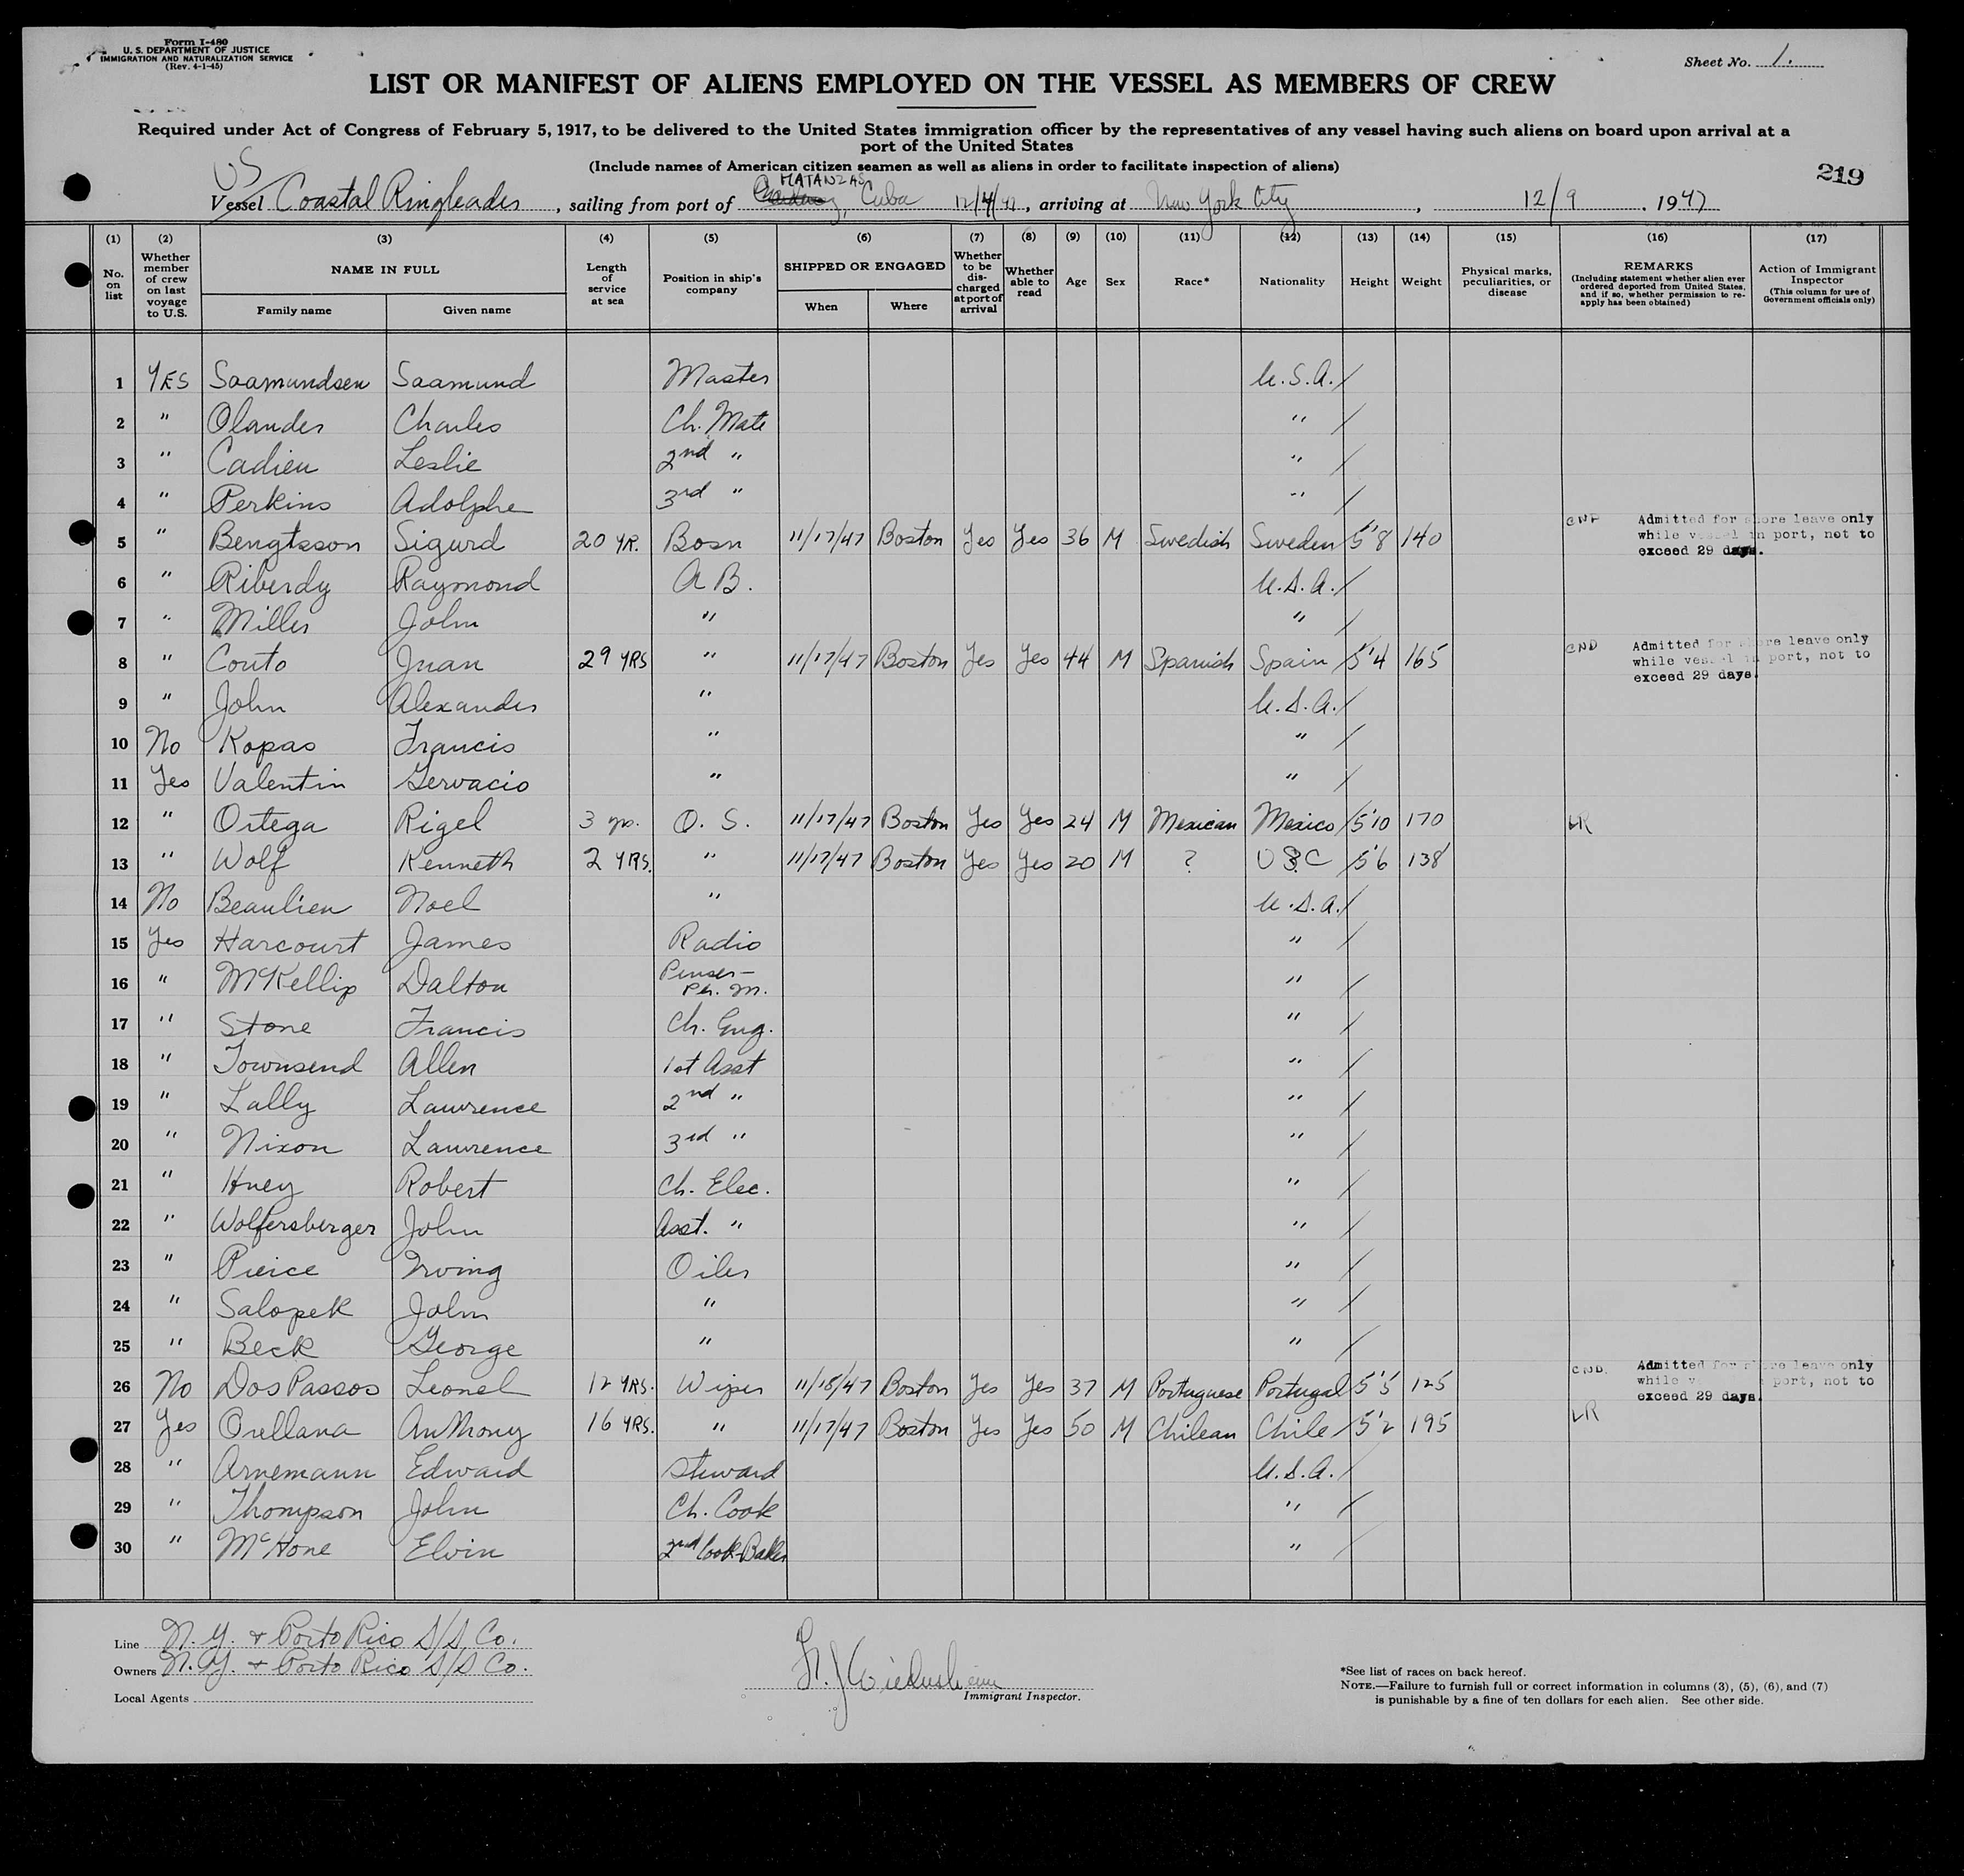 Form I-480
U. S. DEPARTMENT OF JUSTICE
IMMIGRATION AND NATURALIZATION SERVICE
(Rev. 4-1-45)
Sheet No. 1.
LIST OR MANIFEST OF ALIENS EMPLOYED ON THE VESSEL AS MEMBERS OF CREW
Required under Act of Congress of February 5, 1917, to be delivered to the United States immigration officer by the representatives of any vessel having such aliens on board upon arrival at a
port of the United States
(Include names of American citizen seamen as well as aliens in order to facilitate inspection of aliens)
219
US
MATANZAS
Vessel Coastal Ringleader, sailing from port of Cuba 12/4/47, arriving at New York City, 12/9, 1947
(1) (2) (3) (4) (5) (6) (7) (8) (9) (10) (11) (12) (13) (14) (15) (16) (17)
No. on list
Whether member of crew on last voyage to U.S.
NAME IN FULL
Family name
Given name
Length of service at sea
Position in ship's company
SHIPPED OR ENGAGED
When
Where
Whether to be discharged at port of arrival
Whether able to read
Age
Sex
Race*
Nationality
Height
Weight
Physical marks, peculiarities, or disease
REMARKS
(Including statement whether alien ever ordered deported from United States, and if so, whether permission to re-apply has been obtained)
Action of Immigrant Inspector
(This column for use of Government officials only)
1 YES Saamundsen Saamund Master U.S.A. /
2 " Olander Charles Ch. Mate " /
3 " Cadieu Leslie 2nd " " /
4 " Perkins Adolphe 3rd " " /
5 " Bengtsson Sigurd 20 YR. Bosn 11/17/47 Boston Yes Yes 36 M Swedish Sweden / 5'8 140 Admitted for shore leave only while vessel in port, not to exceed 29 days.
6 " Riberdy Raymond A B. U.S.A. /
7 " Miller John " " /
8 " Couto Juan 29 YRS " 11/17/47 Boston Yes Yes 44 M Spanish Spain / 5'4 165 CND Admitted for shore leave only while vessel in port, not to exceed 29 days.
9 " John Alexander " U.S.A. /
10 No Kopas Francis " " /
11 Yes Valentin Gervacio " " /
12 " Ortega Rigel 3 yrs. O. S. 11/17/47 Boston Yes Yes 24 M Mexican Mexico / 5'10 170 LR
13 " Wolf Kenneth 2 YRS. " 11/17/47 Boston Yes Yes 20 M ? USC / 5'6 138
14 No Beaulieu Noel " U.S.A. /
15 Yes Harcourt James Radio " /
16 " McKellip Dalton Purser-Ph. M. " /
17 " Stone Francis Ch. Eng. " /
18 " Townsend Allen 1st Asst " /
19 " Lally Lawrence 2nd " " /
20 " Nixon Lawrence 3rd " " /
21 " Huey Robert Ch. Elec. " /
22 " Wolfersberger John Asst. " " /
23 " Pierce Irving Oiler " /
24 " Salopek John " " /
25 " Beck George " " /
26 No DosPassos Leonel 12 YRS. Wiper 11/18/47 Boston Yes Yes 37 M Portuguese Portugal 5'5 125 CND. Admitted for shore leave only while vessel in port, not to exceed 29 days.
27 Yes Orellana Anthony 16 YRS. " 11/17/47 Boston Yes Yes 50 M Chilean Chile / 5'2 195 LR
28 " Arnemann Edward Steward U.S.A. /
29 " Thompson John Ch. Cook " /
30 " McHone Elvin 2nd Cook-Baker " /
Line N.Y. & Porto Rico S/S. Co.
Owners N.Y. & Porto Rico S/S Co.
Local Agents
Immigrant Inspector.
*See list of races on back hereof.
NOTE.—Failure to furnish full or correct information in columns (3), (5), (6), and (7)
is punishable by a fine of ten dollars for each alien. See other side.